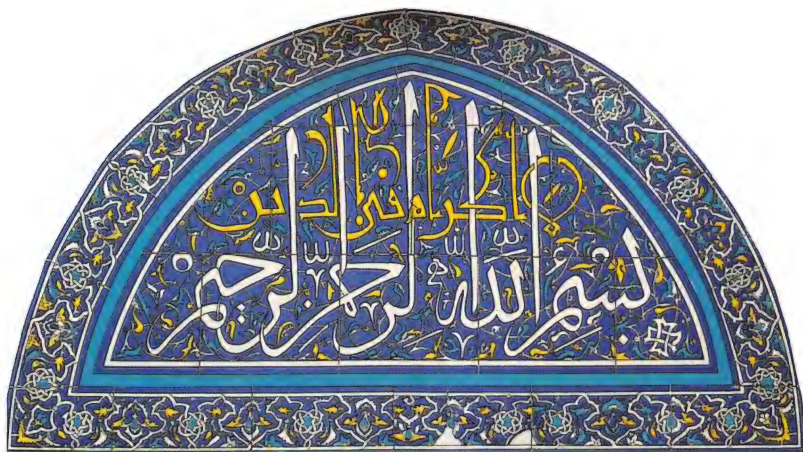 لا اكراه في الدين
بسم الله الرحمن الرحيم